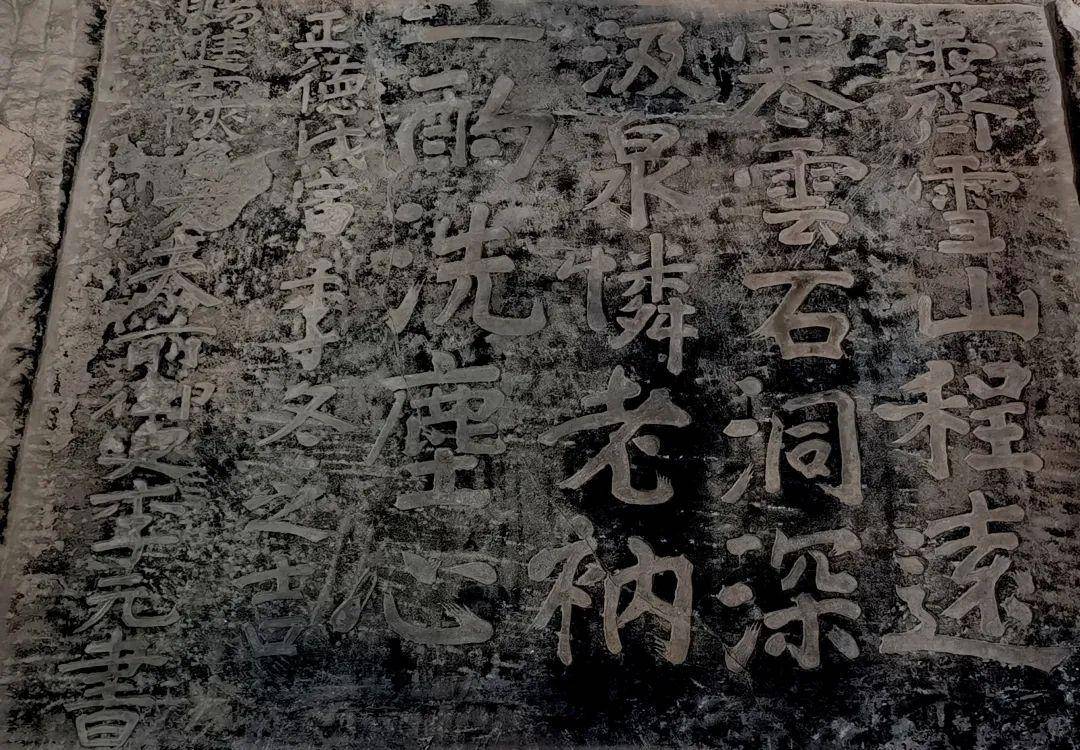 霽雪山程遠
寒雲石洞深
汲泉憐老衲
一酌洗塵心
正德戊寅季冬之吉
賜進前御史李元書